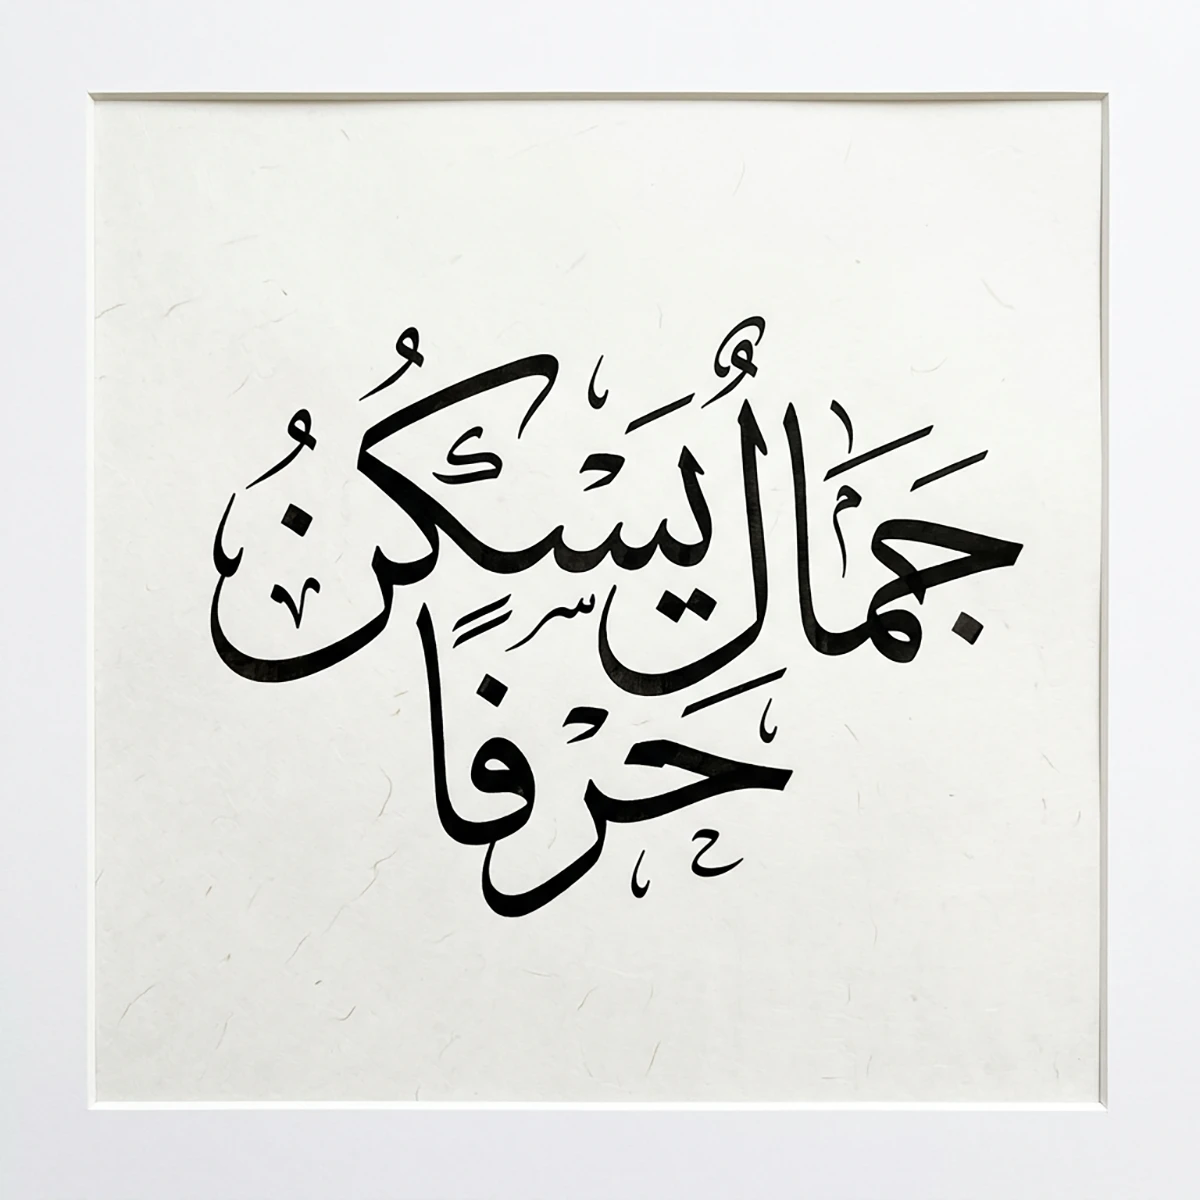 جَمَالٌ يَسْكُنُ
حَرْفًا